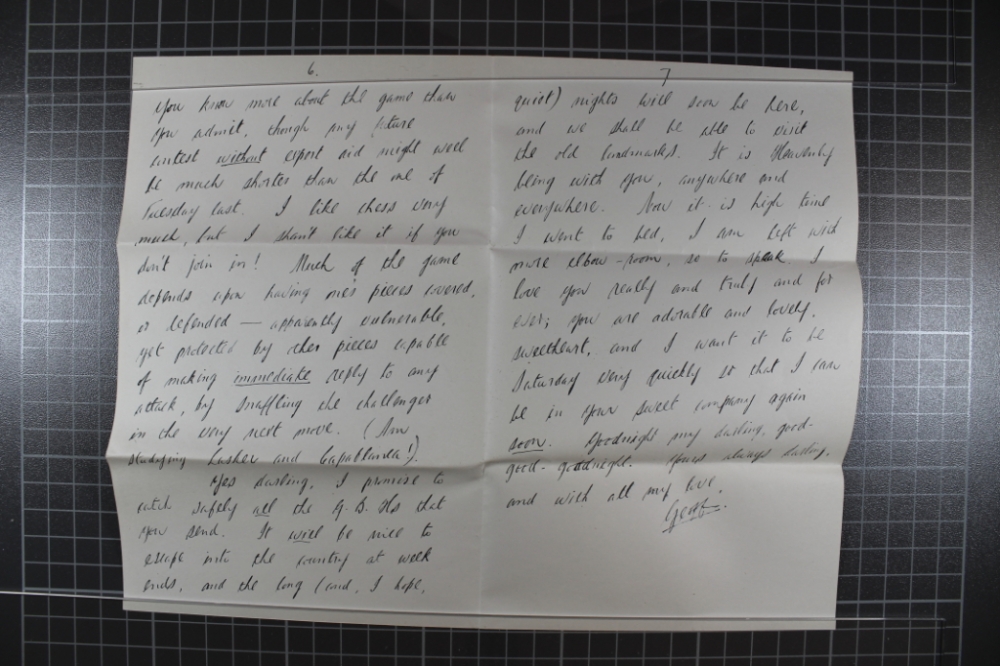 6.
you know more about the game than
you admit, though any future
contest without expert aid might well
be much shorter than the one of
Tuesday last. I like chess very
much, but I shan't like it if you
don't join in! Much of the game
depends upon having one's pieces covered,
or defended — apparently vulnerable,
yet protected by other pieces capable
of making immediate reply to any
attack, by snaffling the challenger
in the very next move. (Am
studying Lasker and Capablanca).
Yes darling, I promise to
catch safely all the G.B. Hs that
you send. It will be nice to
escape into the country at week
ends, and the long (and, I hope,
7
quiet) nights will soon be here,
and we shall be able to visit
the old landmarks. It is Heavenly
being with you, anywhere and
everywhere. Now it is high time
I went to bed, I am left with
more elbow-room, so to speak. I
love you really and truly and for
ever; you are adorable and lovely,
sweetheart, and I want it to be
Saturday very quickly so that I can
be in your sweet company again
soon. Goodnight my darling, good-
good-goodnight. Yours always darling,
and with all my love,
Geoff.